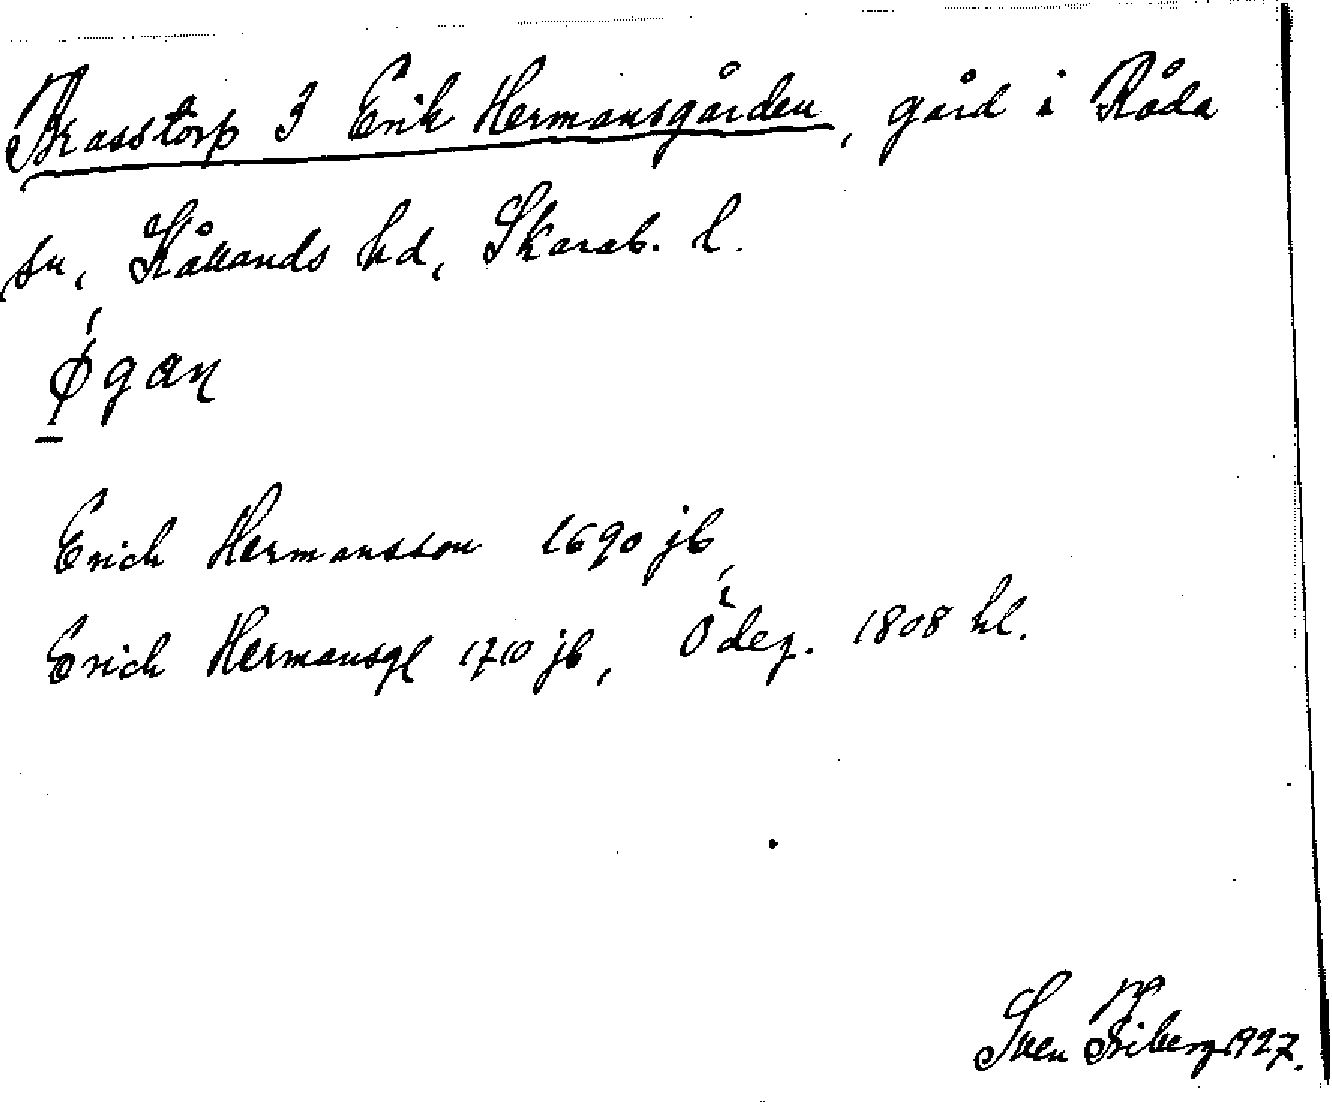 Brasstorp 3 Erik Hermansgården, gård i Råda
sn, Kållands hd, Skarab. l.
Erich Hermansson 1690 jb,
Erich Hermansgl 1710 jb, Ödeg. 1808 hl.
Sven Friberg 1927.